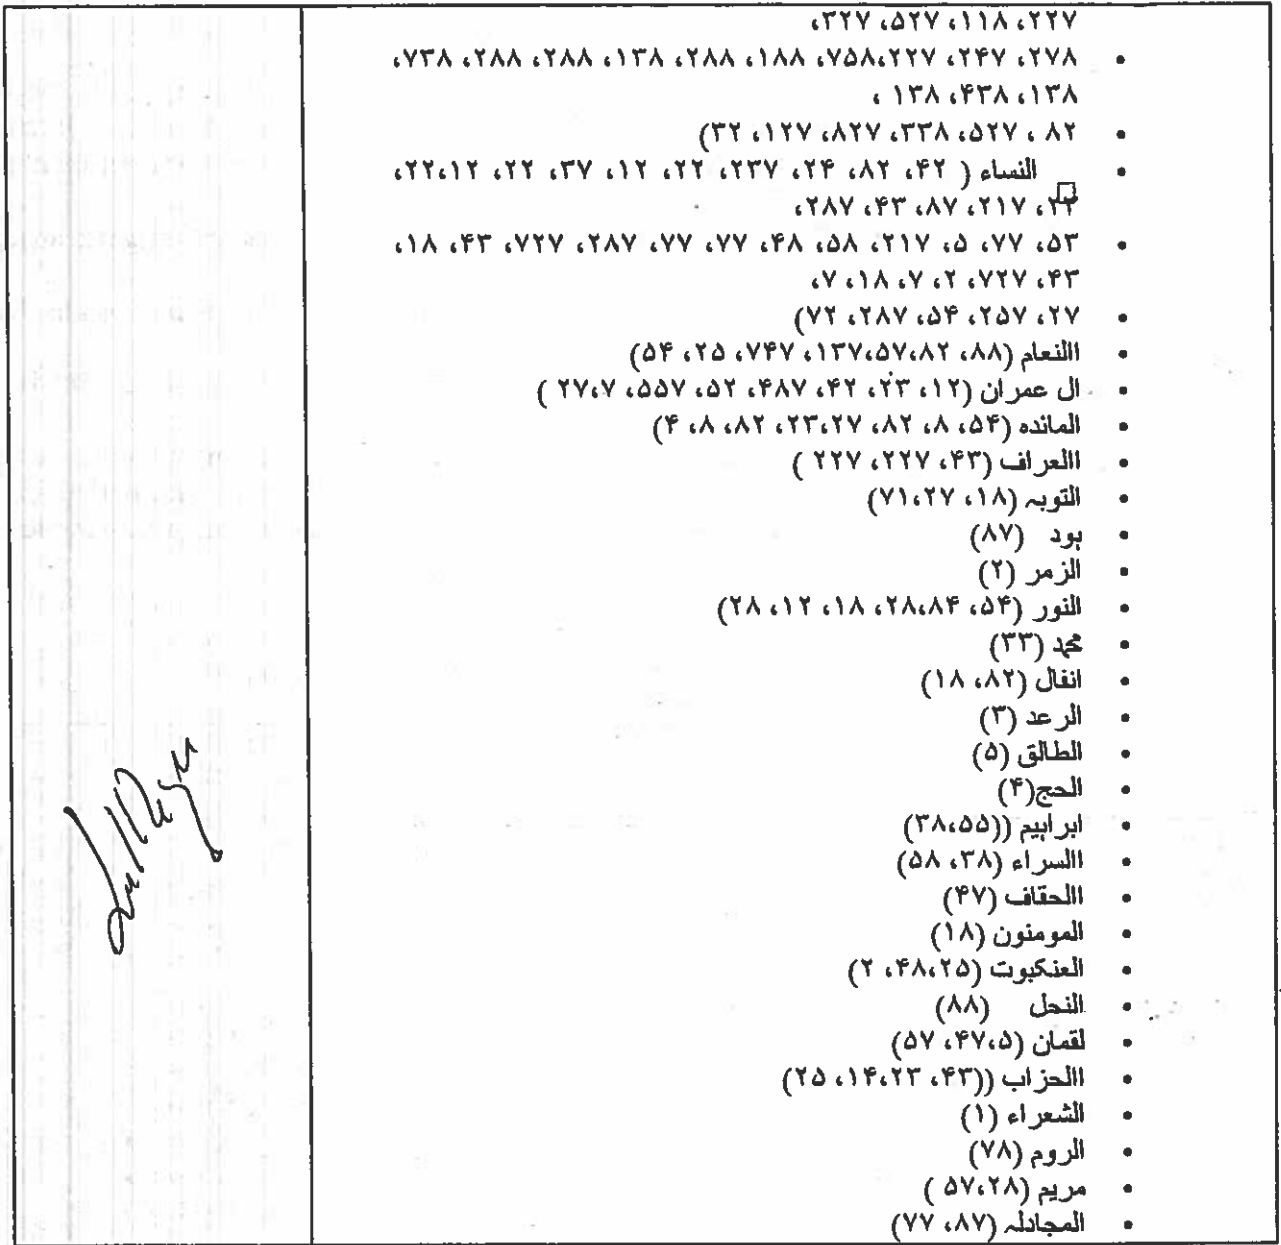 ۲۲۷، ۱۱۸، ۵۲۷، ۳۲۷،
• ۲۷۸، ۲۴۷، ۷۵۸،۲۲۷، ۱۸۸، ۲۸۸، ۱۳۸، ۲۸۸، ۲۸۸، ۷۳۸،
۱۳۸، ۴۳۸، ۱۳۸ ،
• ۸۲ ، ۵۲۷، ۳۳۸، ۸۲۷، ۱۲۷، ۳۲)
• النساء ( ۴۲، ۸۲، ۲۴، ۲۳۷، ۲۲، ۱۲، ۳۷، ۲۲، ۲۲،۱۲،
۲۳، ۲۱۷، ۸۷، ۴۳، ۲۸۷،
• ۵۳، ۷۷، ۵، ۲۱۷، ۵۸، ۴۸، ۷۷، ۷۷، ۲۸۷، ۷۲۷، ۴۳، ۱۸،
۴۳، ۷۲۷، ۲، ۷، ۱۸، ۷،
• ۲۷، ۲۵۷، ۵۴، ۲۸۷، ۷۲)
• االنعام (۸۸، ۱۳۷،۵۷،۸۲، ۷۴۷، ۲۵، ۵۴)
• ال عمران (۱۲، ۲۳، ۴۲، ۴۸۷، ۵۲، ۵۵۷، ۲۷،۷ )
• المائده (۵۴، ۸، ۸۲، ۲۳،۲۷، ۸۲، ۸، ۴)
• االعراف (۴۳، ۲۲۷، ۲۲۷ )
• التوبہ (۱۸، ۷۱،۲۷)
• ہود (۸۷)
• الزمر (۲)
• النور (۵۴، ۲۸،۸۴، ۱۸، ۱۲، ۲۸)
• محمد (۳۳)
• انفال (۸۲، ۱۸)
• الرعد (۳)
• الطالق (۵)
• الحج(۴)
• ابراہیم ((۳۸،۵۵)
• االسراء (۳۸، ۵۸)
• االحقاف (۴۷)
• المومنون (۱۸)
• العنکبوت (۴۸،۲۵، ۲)
• النحل (۸۸)
• لقمان (۴۷،۵، ۵۷)
• االحزاب ((۴۳، ۱۴،۲۳، ۲۵)
• الشعراء (۱)
• الروم (۷۸)
• مریم (۵۷،۲۸ )
• المجادلہ (۸۷، ۷۷)